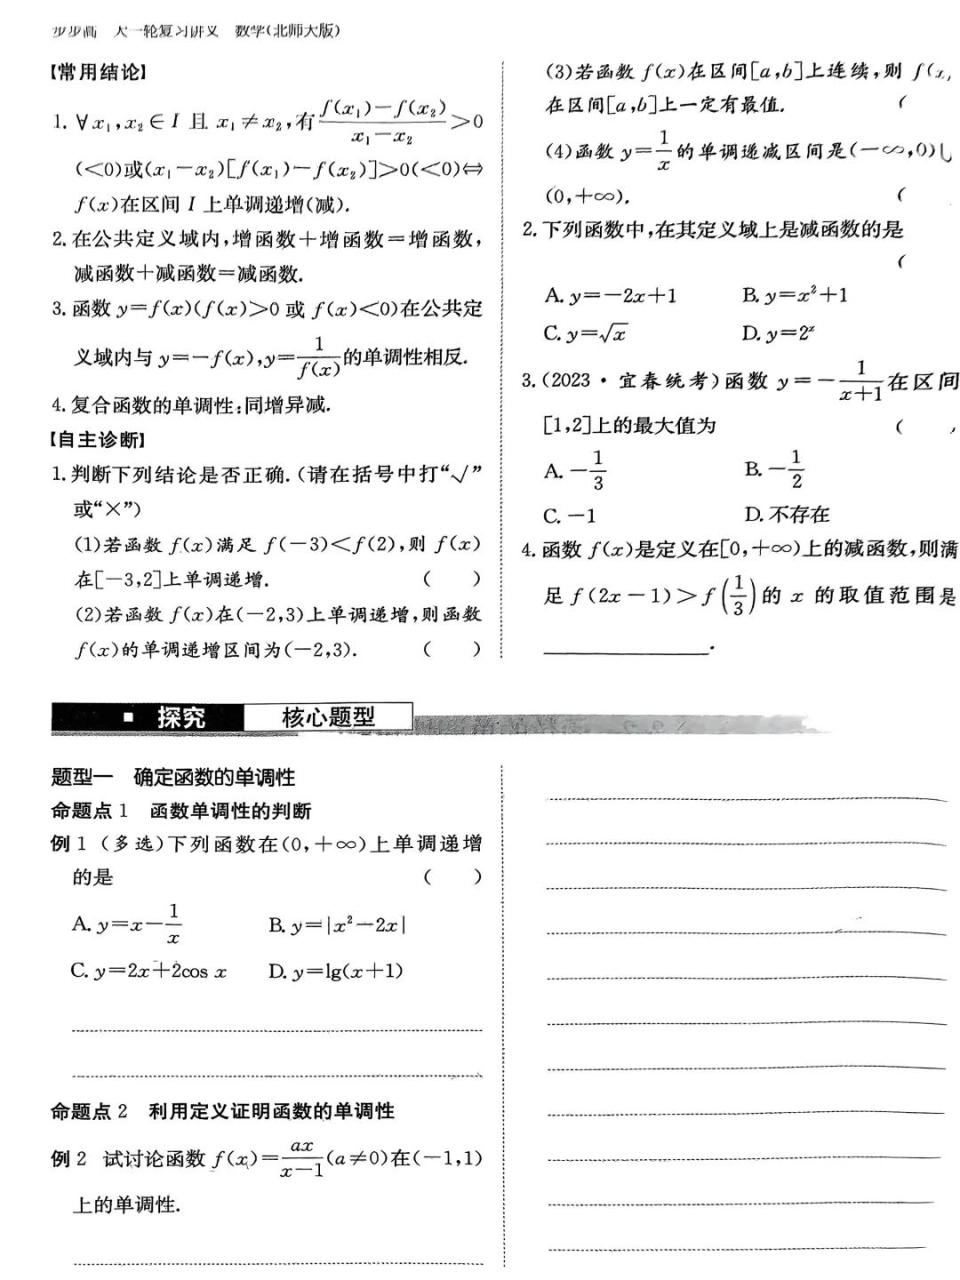 步步高 大一轮复习讲义 数学(北师大版)
【常用结论】
1. ∀x₁,x₂∈I 且 x₁≠x₂,有 (f(x₁)-f(x₂))/(x₁-x₂)>0
(<0)或(x₁-x₂)[f(x₁)-f(x₂)]>0(<0)⇔
f(x)在区间 I 上单调递增(减).
2. 在公共定义域内,增函数+增函数=增函数,
减函数+减函数=减函数.
3. 函数 y=f(x)(f(x)>0 或 f(x)<0)在公共定
义域内与 y=-f(x),y=1/f(x)的单调性相反.
4. 复合函数的单调性:同增异减.
【自主诊断】
1. 判断下列结论是否正确.(请在括号中打“√”
或“×”)
(1)若函数 f(x)满足 f(-3)<f(2),则 f(x)
在[-3,2]上单调递增. ( )
(2)若函数 f(x)在(-2,3)上单调递增,则函数
f(x)的单调递增区间为(-2,3). ( )
(3)若函数 f(x)在区间[a,b]上连续,则 f(x
在区间[a,b]上一定有最值. (
(4)函数 y=1/x 的单调递减区间是(-∞,0)∪
(0,+∞). (
2. 下列函数中,在其定义域上是减函数的是
(
A. y=-2x+1 B. y=x²+1
C. y=√x D. y=2ˣ
3. (2023·宜春统考)函数 y=-1/(x+1)在区间
[1,2]上的最大值为 (
A. -1/3 B. -1/2
C. -1 D. 不存在
4. 函数 f(x)是定义在[0,+∞)上的减函数,则满
足 f(2x-1)>f(1/3)的 x 的取值范围是
________.
探究 核心题型
题型一 确定函数的单调性
命题点 1 函数单调性的判断
例 1 (多选)下列函数在(0,+∞)上单调递增
的是 ( )
A. y=x-1/x B. y=|x²-2x|
C. y=2x+2cos x D. y=lg(x+1)
命题点 2 利用定义证明函数的单调性
例 2 试讨论函数 f(x)=ax/(x-1)(a≠0)在(-1,1)
上的单调性.